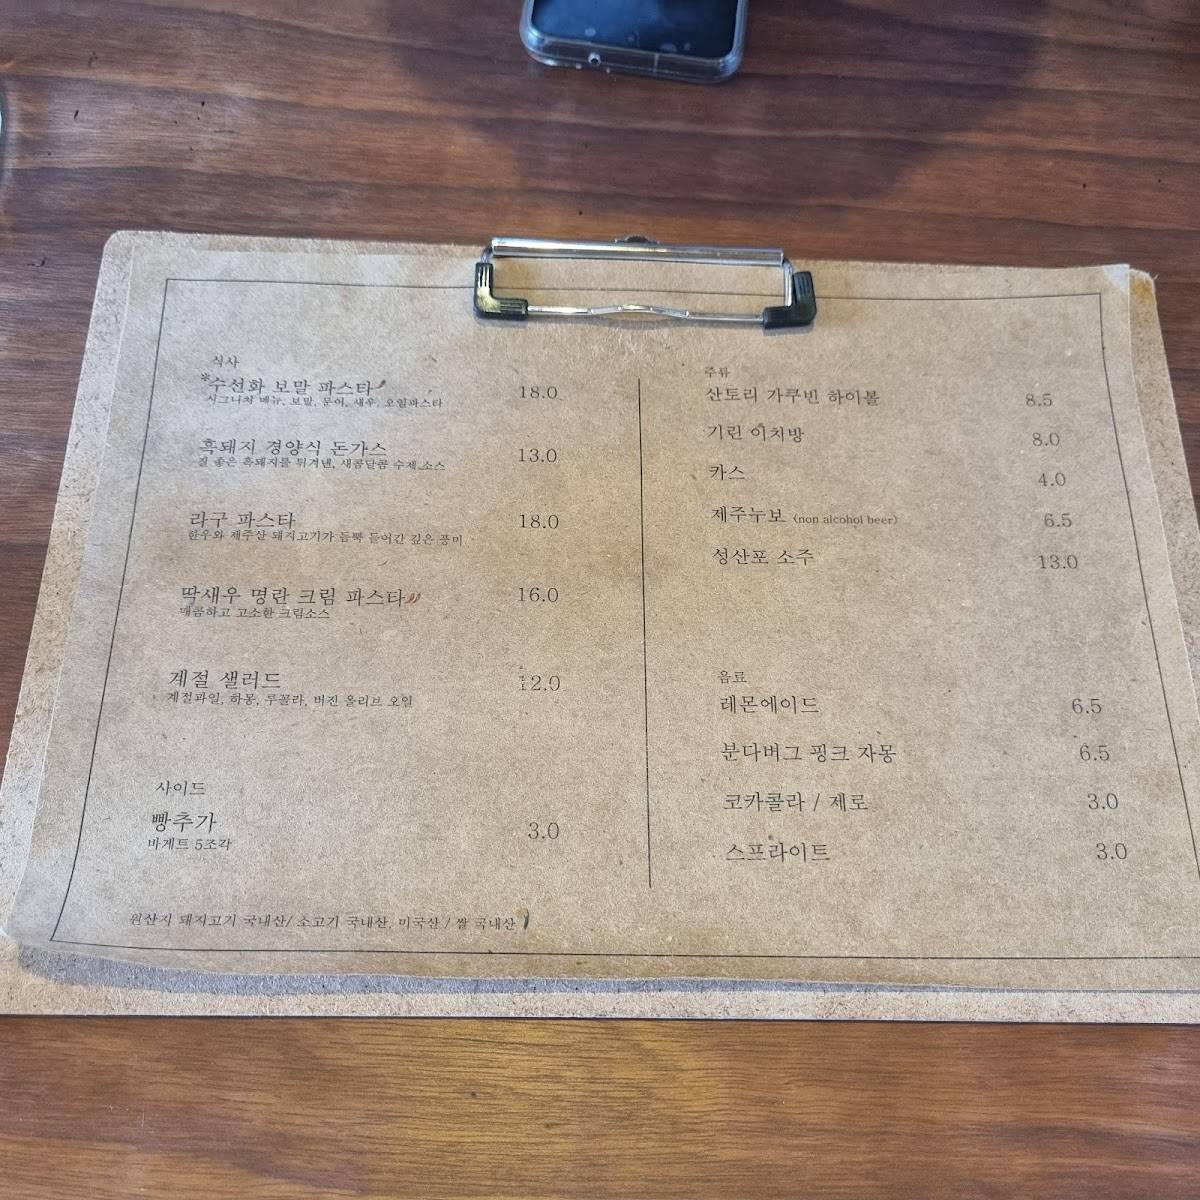 식사
*수선화 보말 파스타 18.0
시그니처 메뉴, 보말, 문어, 새우, 오일파스타
흑돼지 경양식 돈가스 13.0
질 좋은 흑돼지를 튀겨낸, 새콤달콤 수제 소스
라구 파스타 18.0
한우와 제주산 돼지고기가 듬뿍 들어간 깊은 풍미
딱새우 명란 크림 파스타 16.0
매콤하고 고소한 크림소스
계절 샐러드 12.0
계절과일, 하몽, 루꼴라, 버진 올리브 오일
사이드
빵추가 3.0
바게트 5조각
원산지 돼지고기 국내산/ 소고기 국내산, 미국산 / 쌀 국내산
주류
산토리 가쿠빈 하이볼 8.5
기린 이치방 8.0
카스 4.0
제주누보 (non alcohol beer) 6.5
성산포 소주 13.0
음료
레몬에이드 6.5
분다버그 핑크 자몽 6.5
코카콜라 / 제로 3.0
스프라이트 3.0